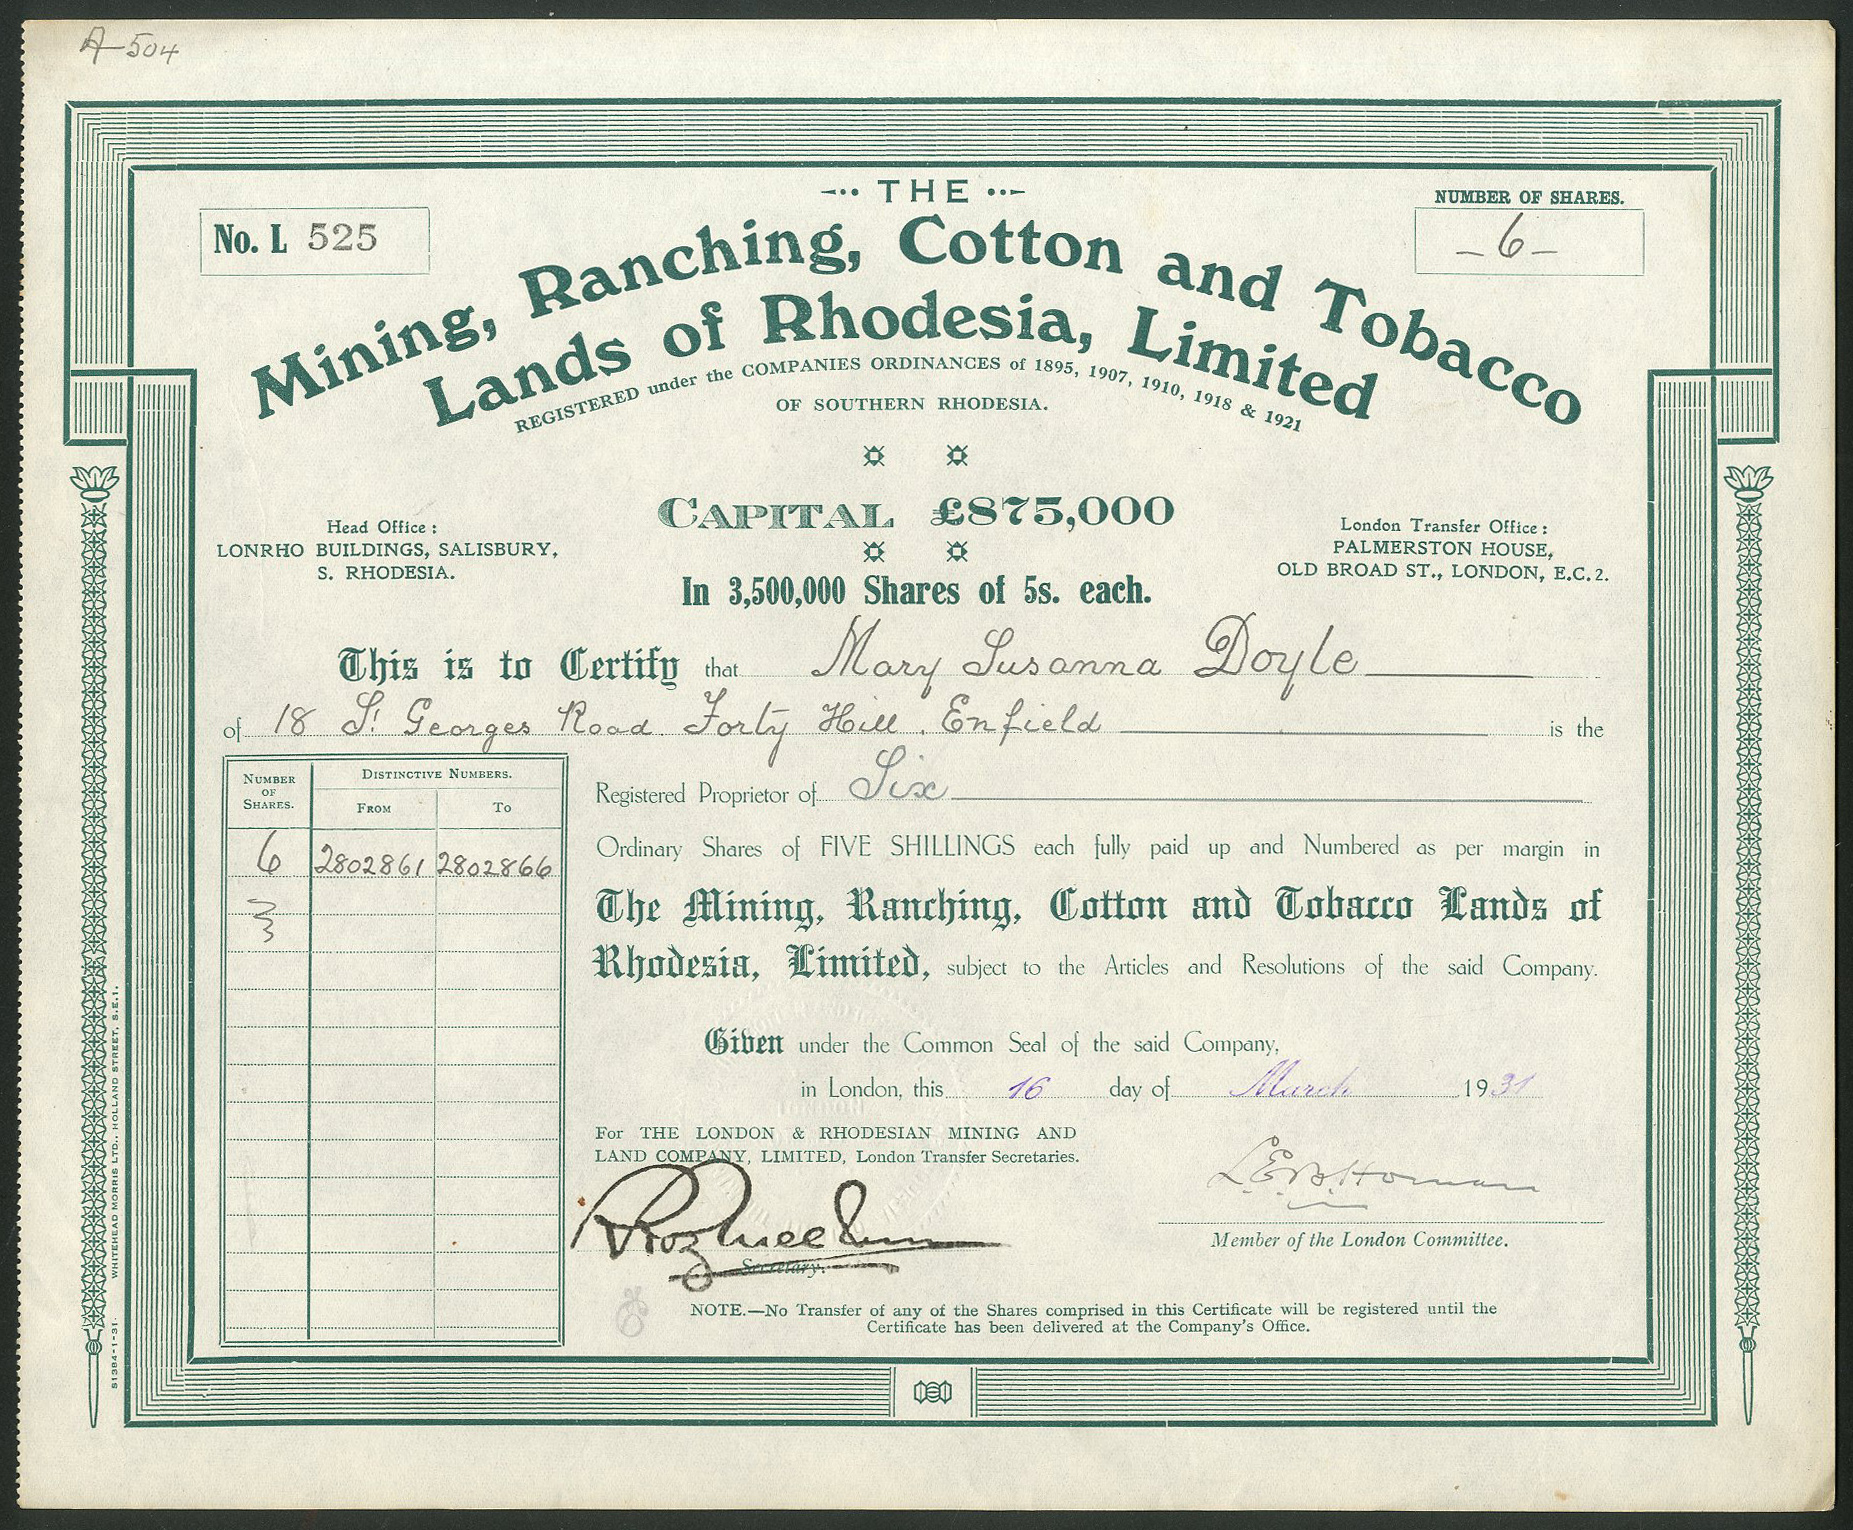 A-504
THE
No. L 525
NUMBER OF SHARES.
- 6 -
Mining, Ranching, Cotton and Tobacco
Lands of Rhodesia, Limited
REGISTERED under the COMPANIES ORDINANCES of 1895, 1907, 1910, 1918 & 1921
OF SOUTHERN RHODESIA.
CAPITAL £875,000
Head Office:
LONRHO BUILDINGS, SALISBURY,
S. RHODESIA.
London Transfer Office:
PALMERSTON HOUSE,
OLD BROAD ST., LONDON, E.C.2.
In 3,500,000 Shares of 5s. each.
This is to Certify that Mary Susanna Doyle
of 18 St Georges Road Forty Hill. Enfield is the
Registered Proprietor of Six
NUMBER OF SHARES.
DISTINCTIVE NUMBERS.
FROM TO
6 2802861 2802866
Ordinary Shares of FIVE SHILLINGS each fully paid up and Numbered as per margin in
The Mining, Ranching, Cotton and Tobacco Lands of
Rhodesia, Limited, subject to the Articles and Resolutions of the said Company.
Given under the Common Seal of the said Company,
in London, this 16 day of March 1931
For THE LONDON & RHODESIAN MINING AND
LAND COMPANY, LIMITED, London Transfer Secretaries.
Secretary.
Member of the London Committee.
NOTE.—No Transfer of any of the Shares comprised in this Certificate will be registered until the
Certificate has been delivered at the Company's Office.
S1384-1-31. WHITEHEAD MORRIS LTD., HOLLAND STREET, S.E.1.